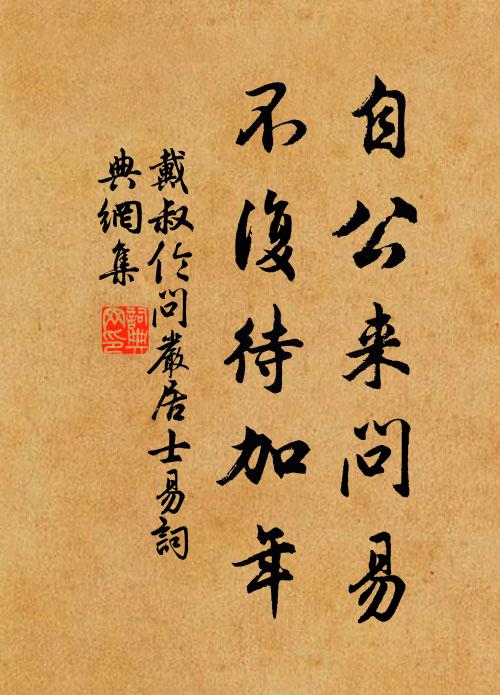 自公来问易
不復待加年
戴叔伦问嚴居士易詞
典網集
詞典网印